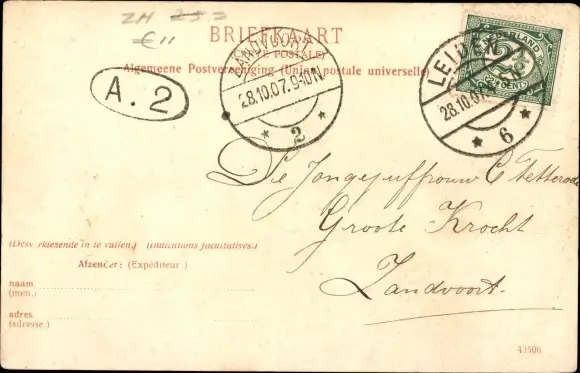 ZH 253
€11
BRIEFKAART
(CARTE POSTALE)
Algemeene Postvereeniging (Union postale universelle)
ZANDVOORT
28.10.07.9-10N
2
LEIDEN
28.10.07
6
NEDERLAND
2½
CENT
A. 2
De Jongejuffrouw C Tetterode
Groote Krocht
Zandvoort.
(Deze invulling facultatief.) (indications facultatives.)
Afzender: (Expéditeur:)
naam
(nom.)
adres
(adresse.)
43506